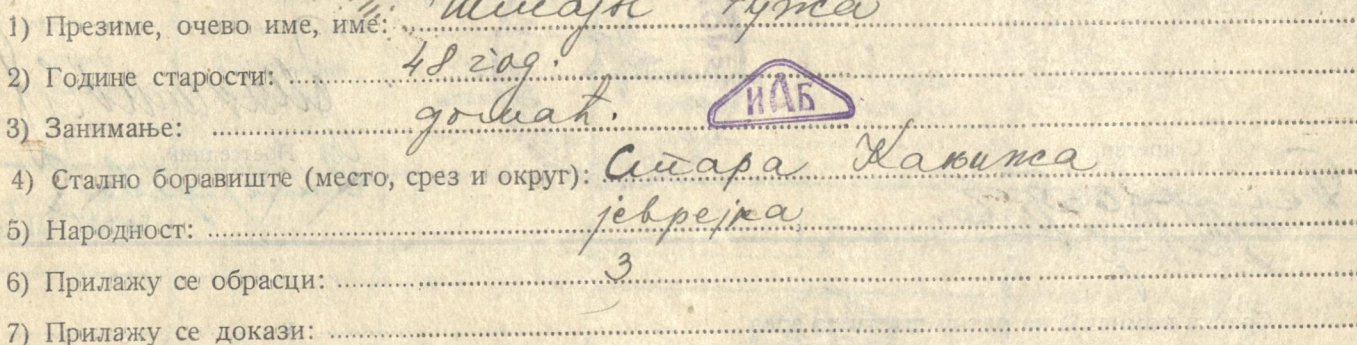 1) Презиме, очево име, име: Ружа
2) Године старости: 48 год.
3) Занимање: домаћ.
ИАБ
4) Стално боравиште (место, срез и округ): Стара Кањижа
5) Народност: јеврејка
6) Прилажу се обрасци: 3
7) Прилажу се докази: